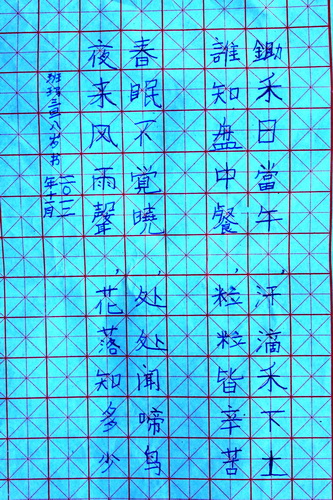 鋤禾日當午,汗滴禾下土
誰知盘中餐,粒粒皆辛苦
春眠不覺曉,处处闻啼鸟
夜来风雨聲,花落知多少
八岁书
二〇一二
年十一月